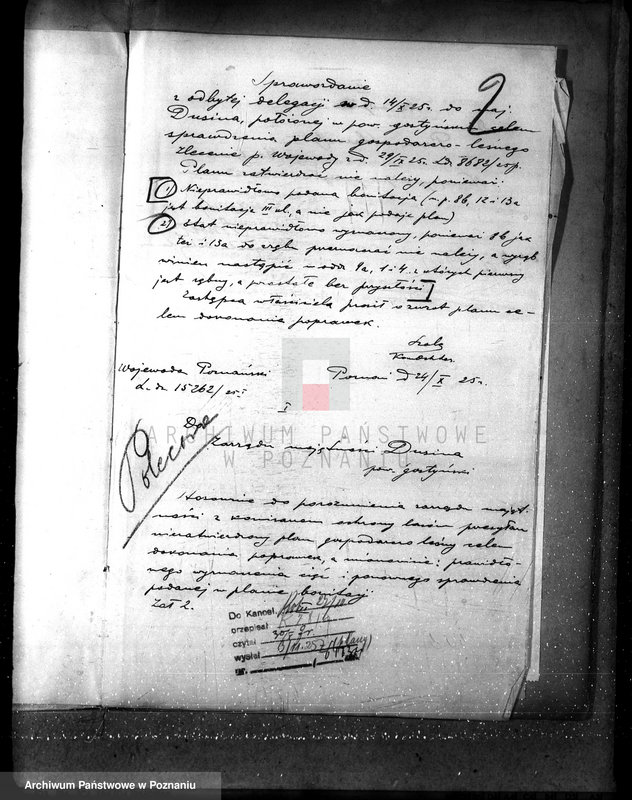 2
Sprawozdanie
z odbytej delegacji w d. 14/X 25r. do maj.
Dusina, położonej w pow. gostyńskim celem
sprawdzenia planu gospodarczo-leśnego
Zlecenie p. Wojewody z d. 29/IX 25r. Ld. 8682/25 p.
Planu zatwierdzać nie należy, ponieważ:
1) Nieprawidłowo podana bonitacja (n.p. 8b, 12 i 13a
jest bonitacja III kl., a nie jak podaje plan)
2) Etat nieprawidłowo wyznaczony, ponieważ 8b jak
też i 13a do wyrębu przeznaczać nie należy, a wyrąb
winien nastąpić w odd. 9a, 1 i 4 z których pierwszy
jest rębny, a pozostałe bez przyszłości
Zastępca właściciela prosił o zwrot planu ce-
lem dokonania poprawek.
Wojewoda Poznański
L. dz. 15262/25 I
Poznań d 24/X 25r.
I
Do
Zarządu majętności Dusina
pow. gostyński
Polecone
Stosownie do porozumienia zarządu majęt-
ności z komisarzem ochrony lasów przesyłam
niezatwierdzony plan gospodarczo leśny celem
dokonania poprawek, a mianowicie: prawidło-
wego wyznaczenia cięć i ponownego sprawdzenia
podanej w planie bonitacji
Zał 2.
Do Kancel.
przepisał
czytał
wysłał
nr.
ARCHIWUM PAŃSTWOWE
W POZNANIU
Archiwum Państwowe w Poznaniu